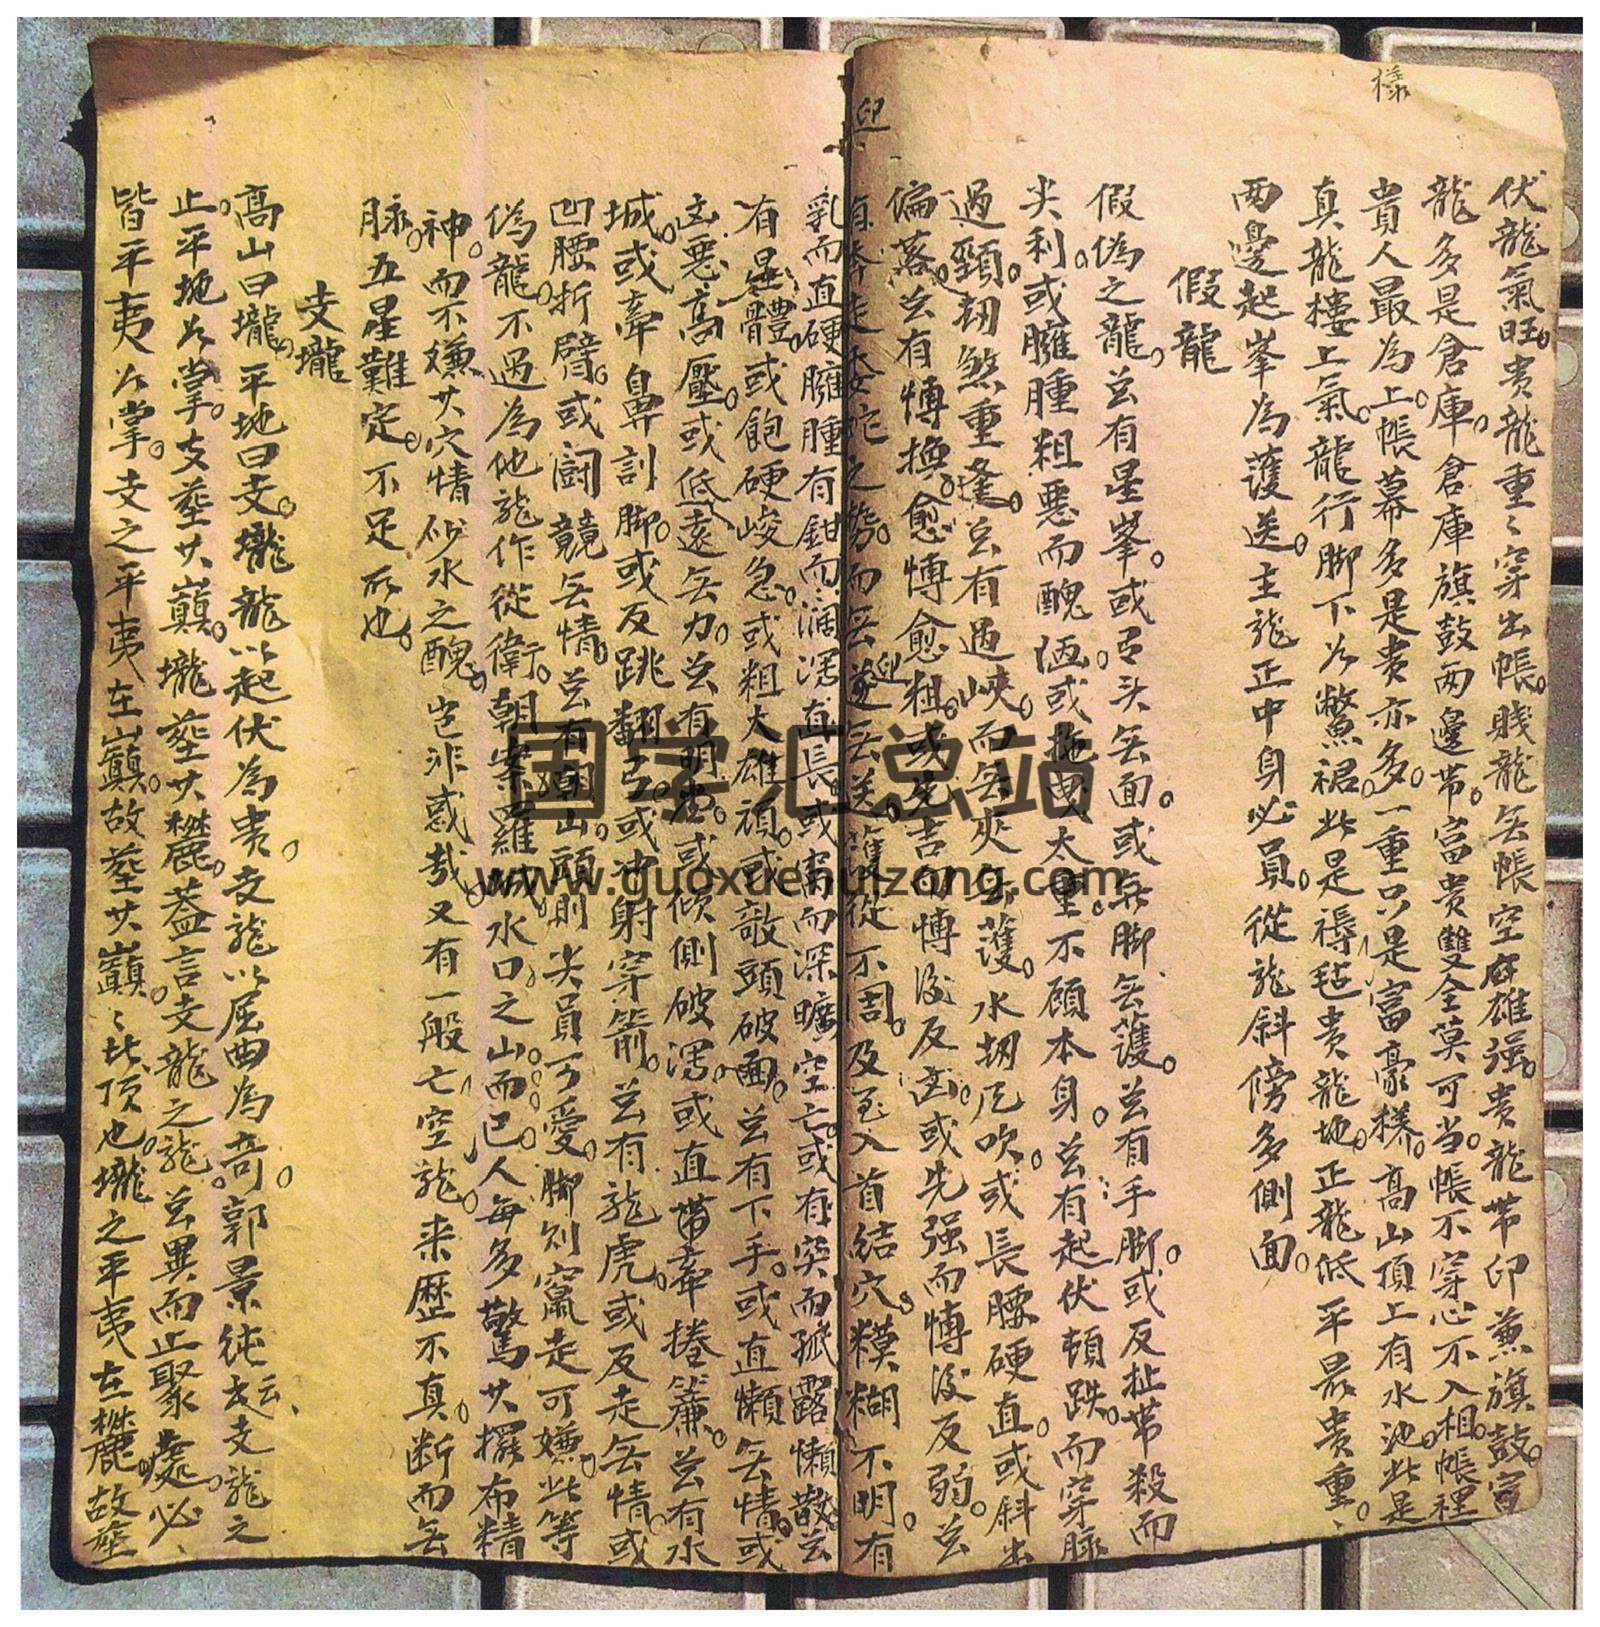 樣
伏龍氣旺貴龍重〻穿出帳賤龍無帳空雄強貴龍帶印兼旗鼓富
龍多是倉庫倉庫旗鼓兩邊帶富貴雙全莫可當帳不穿心不入相帳裡
貴人最為上帳幕多是貴亦多一重只是富豪樣高山頂上有水池此是
真龍樓上氣龍行脚下為鱉裙此是褥毡貴龍地正龍低平最貴重
兩邊起峯為護送主龍正中身必員從龍斜傍多側面
假龍
假偽之龍豈有星峯或弓头無面或無脚無護豈有手脚或反扯帶殺而
尖利或臃腫粗惡而醜陋或拖曳太重不顧本身豈有起伏頓跌而穿脉
過頸刼煞重逢豈有過峽而無夾無護水刼風吹或長腰硬直或斜出
偏落豈有博換愈博愈粗或先吉而博後反凶或先强而博後反弱豈
有奔走委蛇之勢而無迎無送護從不周及至入首結穴糢糊不明有
迎
乳而直硬臃腫有鉗而濶深直長或窩而深曠空亡或有突而孤露懶散豈
有星體或飽硬峻急或粗大雄頑或破頭破面豈有下手或直懶無情或
凶惡高壓或低遠無力豈有明堂或傾側破瀉或直帶牽捲簾豈有水
城或牽鼻割脚或反跳翻弓或沖射穿箭豈有龍虎或反走無情或
凹腰折臂或鬪競無情豈有朝山頭則尖員可愛脚則竄走可嫌此等
偽龍不過為他龍作從衛朝案羅城水口之山而已人每多驚其擺布精
神而不嫌其穴情砂水之醜豈非惑哉又有一般亡空龍來歷不真断而無
脉五星難定不足取也
支壠
高山曰壠平地曰支壠龍以起伏為貴支龍以屈曲為奇郭景純云支龍之
止平地為掌支葬其巔壠葬其麓葢言支龍之龍豈異而止聚處必
皆平夷為掌支之平夷在巔故葬其巔〻比頂也壠之平夷在麓故葬
国学汇总站
www.guoxuehuizong.com